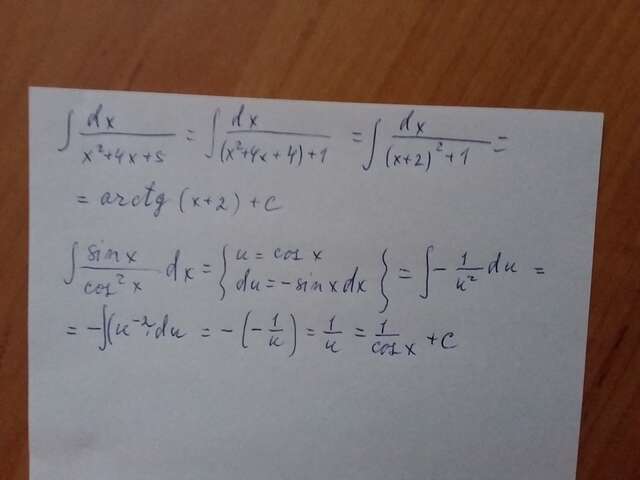 ∫ dx / (x²+4x+5) = ∫ dx / ((x²+4x+4)+1) = ∫ dx / ((x+2)²+1) =
= arctg (x+2) + C
∫ sinx / cos²x dx = { u = cosx du = -sinxdx } = ∫ - 1/u² du =
= -∫(u⁻²)du = -(-1/u) = 1/u = 1/cosx + C